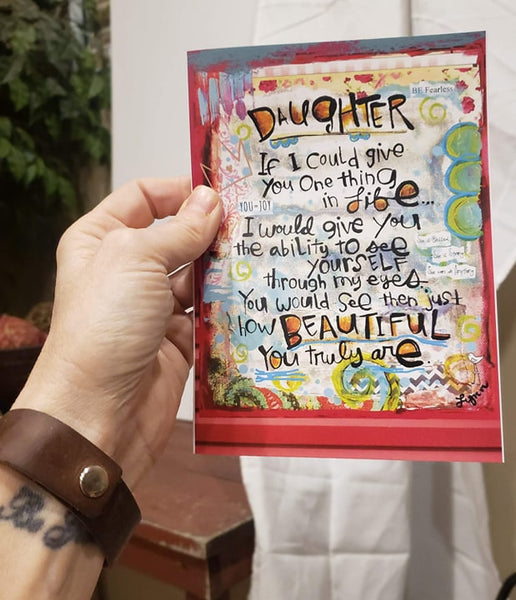 BE Fearless
DAUGHTER
If I could give
you One thing
in life...
YOU-JOY
I would give you
the ability to see
YOURSELF
through my eyes.
You would see then just
how BEAUTIFUL
You truly are.
Lynn